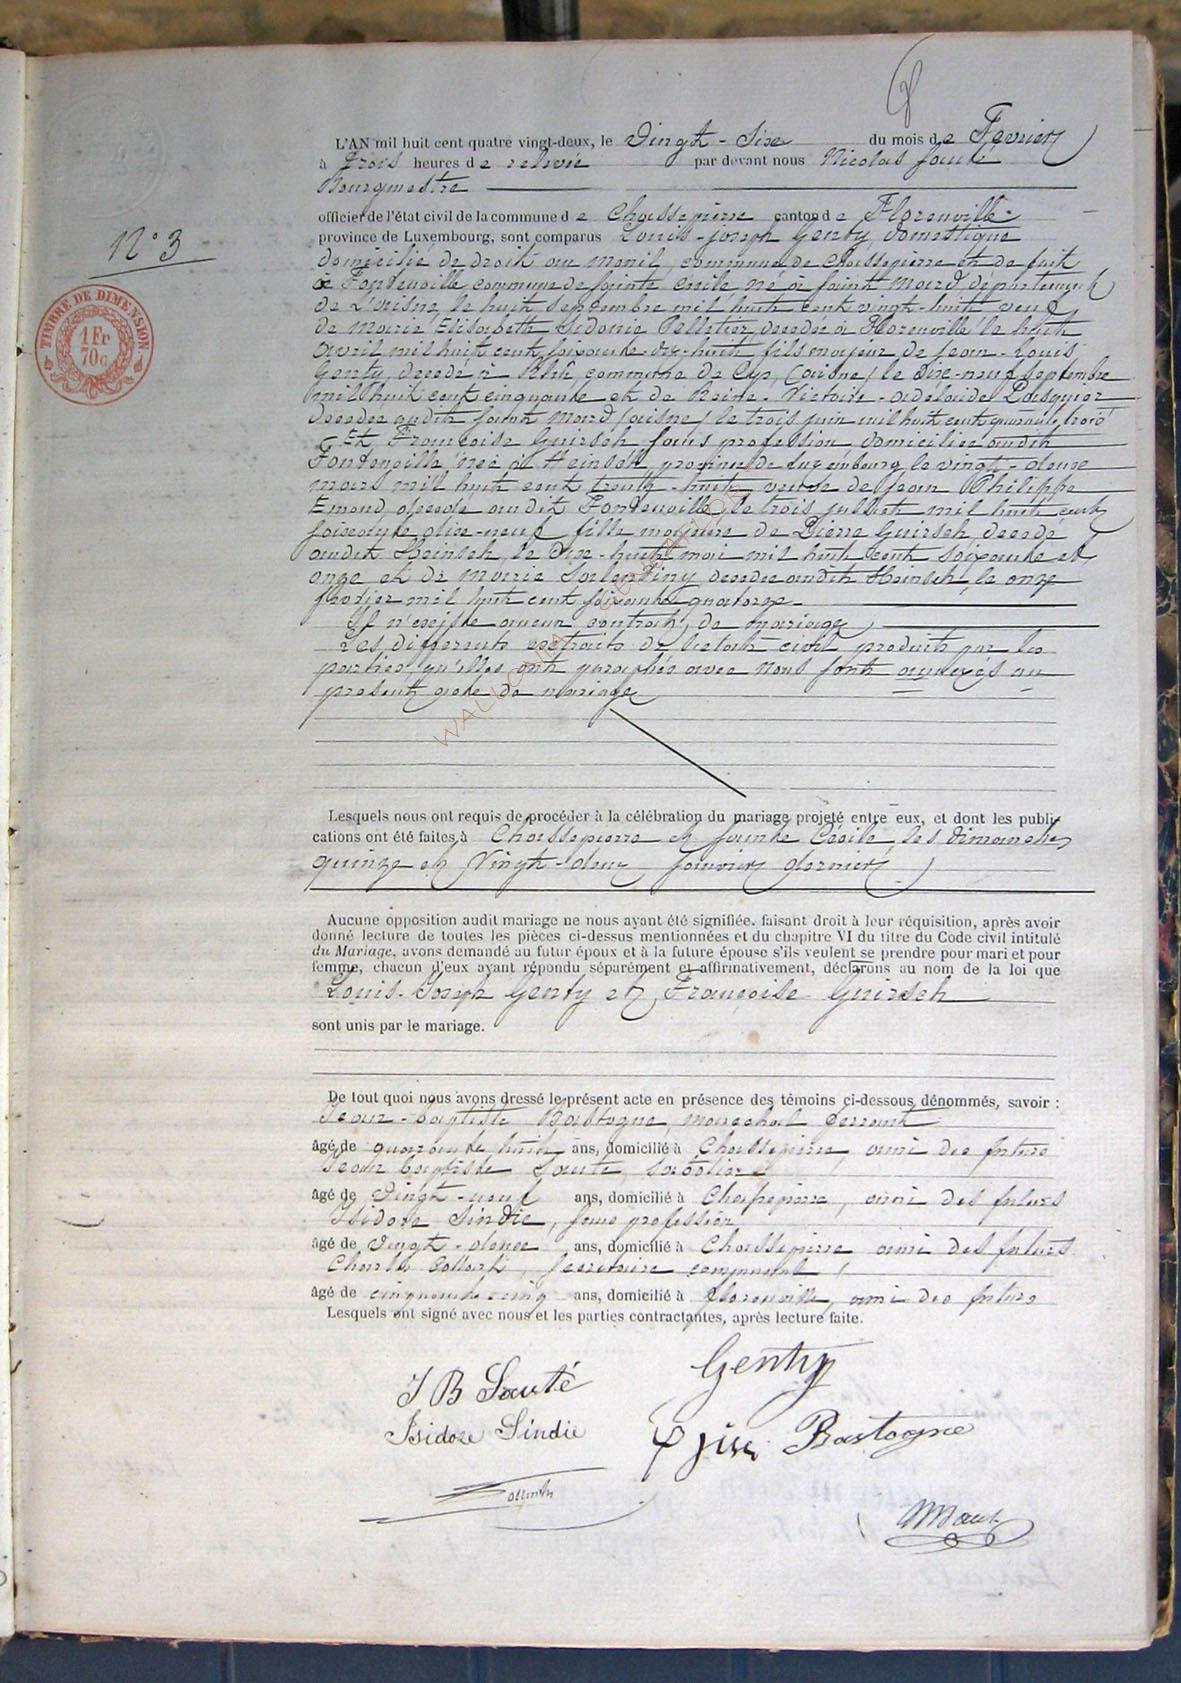 L'AN mil huit cent quatre vingt-deux, le Vingt-Sixe du mois de Fevrier
à Trois heures de relevée par devant nous Nicolas
Bourgmestre
officier de l'état civil de la commune de Chassepierre canton de Florenville
N° 3
province de Luxembourg, sont comparus Louis-joseph Genty, domestique
domicilié de droit au Menil, commune de Chassepierre et de fait
à Fontenoille commune de Sainte Cecile né à Saint Mard departement
TIMBRE DE DIMENSION
1 Fr
70c
de L'aisne le huit septembre mil huit cent vingt-huit veuf
de Marie Elisabeth Sidonie Pelletier, decedée à Florenville le huit
avril mil huit cent soixante-dix-huit fils majeur de Jean-Louis
Genty, decede à commune de Cys, (aisne) le Dix-neuf septembre
mil huit cent cinquante et de Reine-Victoire-adelaide
decedée audit Saint Mard (aisne) le trois juin mil huit cent quarante trois
Et Françoise Guirsch sans profession, domiciliée audit
Fontenoille née à Heinsch, province de Luxembourg le vingt-deux
mars mil huit cent trente-huit veuve de Jean Philippe
Emond, decedé audit Fontenoille le trois juillet mil huit cent
soixante dix-neuf fille majeure de Pierre Guirsch decedé
audit Heinsch, le Dix-huit mai mil huit cent soixante et
onze et de Marie Salentiny decedée audit Heinsch, le onze
fevrier mil huit cent soixante quatorze
Il n'existe aucun contrat de mariage
Les differents extraits de l'etat civil produits par les
parties qu'elles ont paraphés avec nous sont annexés au
present acte de mariage
Lesquels nous ont requis de procéder à la célébration du mariage projeté entre eux, et dont les publi
cations ont été faites à Chassepierre et Sainte Cécile, les dimanches
quinze et Vingt-deux Janvier dernier
Aucune opposition audit mariage ne nous ayant été signifiée, faisant droit à leur réquisition, après avoir
donné lecture de toutes les pièces ci-dessus mentionnées et du chapitre VI du titre du Code civil intitulé
du Mariage, avons demandé au futur époux et à la future épouse s'ils veulent se prendre pour mari et pour
femme, chacun d'eux ayant répondu séparément et affirmativement, déclarons au nom de la loi que
Louis-Joseph Genty et Françoise Guirsch
sont unis par le mariage.
De tout quoi nous avons dressé le présent acte en présence des témoins ci-dessous dénommés, savoir :
Jean-baptiste Bastogne, marechal ferrant
âgé de quarante huit ans, domicilié à Chassepierre, ami des futurs
Jean baptiste Sauté,
âgé de Vingt-neuf ans, domicilié à Chassepierre, ami des futurs
Isidore Sindic, sans profession
âgé de Vingt-deux ans, domicilié à Chassepierre ami des futurs
Charles, secretaire communal
âgé de cinquante-cinq ans, domicilié à florenville, ami des futurs
Lesquels ont signé avec nous et les parties contractantes, après lecture faite.
Genty
J B Sauté
Isidore Sindic
Bastogne